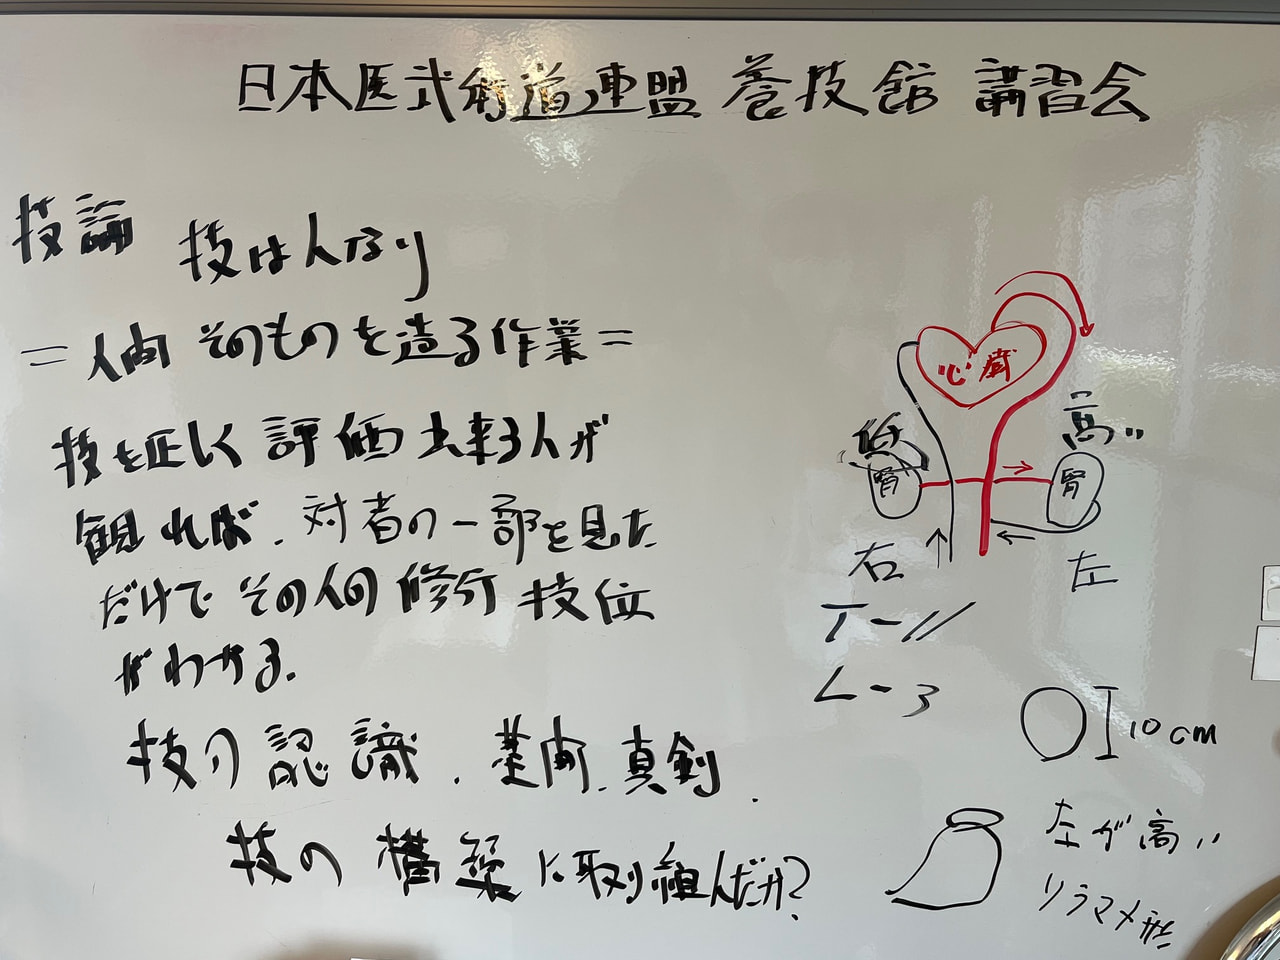 日本医武術道連盟 養技館 講習会
技論 技は人なり
=人間そのものを造る作業=
技を正しく評価出来る人が
観れば、対者の一部を見た
だけでその人の修行 技位
がわかる.
技の認識、基両、真剣、
技の構築に取り組んだか?
心臓
低
腎
高い
腎
右
左
T-11
L-3
10cm
左が高い
ソラマメ形